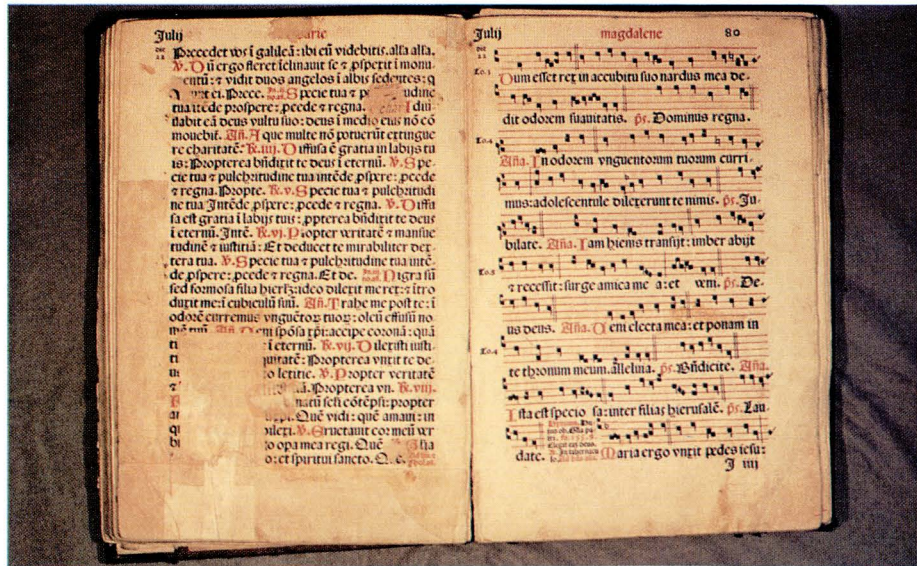 Julij
arie
die
22
Precedet vos ī galileā: ibi eū videbitis. alľa alľa.
℣. Dū ergo fleret īclinauit se ⁊ ꝓspexit ī monu
entū: ⁊ vidit duos angelos ī albis sedentes: q
ei. Prece. Specie tua ⁊ p udine
tua ītēde prospere: ꝓcede ⁊ regna. I diu
dabit eā deus vultu suo: deus ī medio eius nō cō
mouebit. Añ. A que multe nō potuerūt extingue
re charitatē. ℟. iiij. Diffusa ē gratia in labijs tu
is: Propterea bñdixit te deus ī eternū. ℣. Spe
cie tua ⁊ pulchritudine tua intēde ꝓspere: ꝓcede
⁊ regna. Propte. ℟. v. Specie tua ⁊ pulchritudi
ne tua Intēde ꝓspere: ꝓcede ⁊ regna. ℣. Diffu
sa est gratia ī labijs tuis: ꝓpterea bñdixit te deus
ī eternū. Intē. ℟. vj. Propter veritatē ⁊ mansue
tudinē ⁊ iustitiā: Et deducet te mirabiliter dex
tera tua. ℣. Specie tua ⁊ pulchritudine tua intē
de ꝓspere: ꝓcede ⁊ regna. Et de. Nigra sū
sed formosa filia hierlʒ: ideo dilexit me rex: ⁊ ītro
duxit me: ī cubiculū suū. Añ. Trahe me post te: ī
odorē curremus vnguētoꝝ tuoꝝ: oleū effusū no
mē tuū. Añ. Veni spōsa xp̄i: accipe coronā: quā
ti ī eternū. ℟. vij. Dilexisti iusti
ti uitatē: Propterea vnxit te de
o letitie. ℣. Propter veritatē
ā. Propterea vn. ℟. viij.
natū seculi cōtēpsi: propter
Quē vidi: quē amaui: in
qu ilexi. ℣. Eructauit cor meū ver
bū o opa mea regi. Quē Glia
o: et spiritui sancto. Q. e.
Julij
magdalene
80
die
22
To.1
Dum esset rex in accubitu suo nardus mea de-
dit odorem suauitatis. p̄s. Dominus regna.
To.4
Aña. In odorem vnguentorum tuorum curri-
mus: adolescentule dilexerunt te nimis. p̄s. Ju-
bilate. Aña. Iam hiems transijt: imber abijt
To.8
⁊ recessit: surge amica me a: et veni. p̄s. De-
us deus. Aña. Veni electa mea: et ponam in
To.4
te thronum meum. alleluia. p̄s. Bñdicite. Aña.
Ista est specio sa: inter filias hierusalē. p̄s. Lau-
date. Maria ergo vnxit pedes iesu:
J iiij